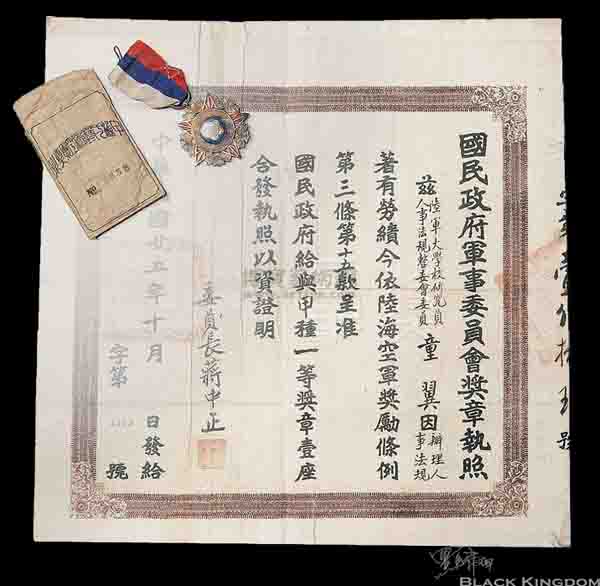 國民政府軍事委員會奬章執照
茲陸軍大學校研究員
人事法規整委會委員
童翼因辦理人
事法規
著有勞績今依陸海空軍奬勵條例
第三條第十五款呈准
國民政府給與甲種一等奬章壹座
合發執照以資證明
委員長蔣中正
中 國廿五年十月 日發給
字第 號
號
BLACK KINGDOM